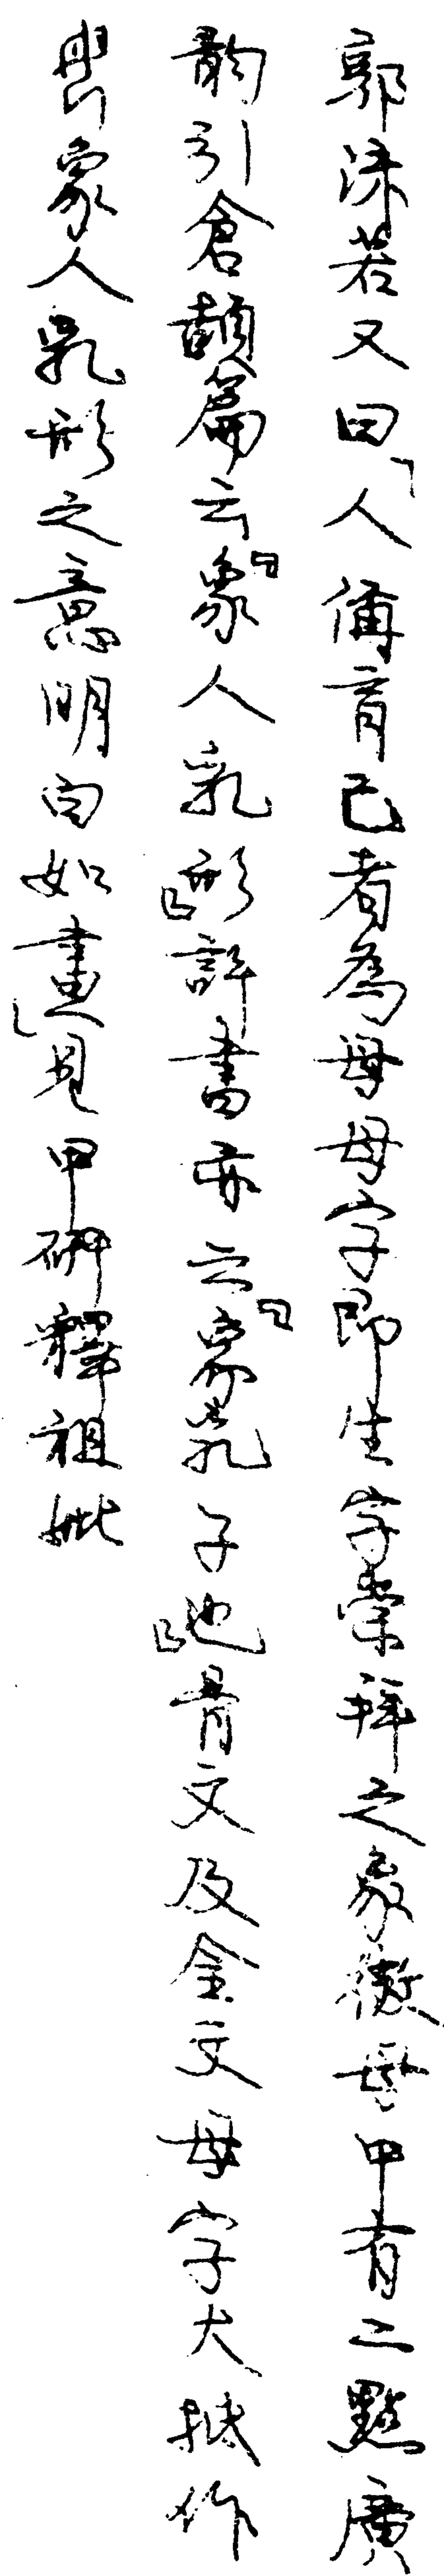 郭沫若又曰「人稱育己者為母母字即生字崇拜之象徵母中有二點廣
韵引倉頡篇云『象人乳形』許書亦云『象乳子也』骨文及金文母字大抵作
象人乳形之意明白如畫」見甲研釋祖妣